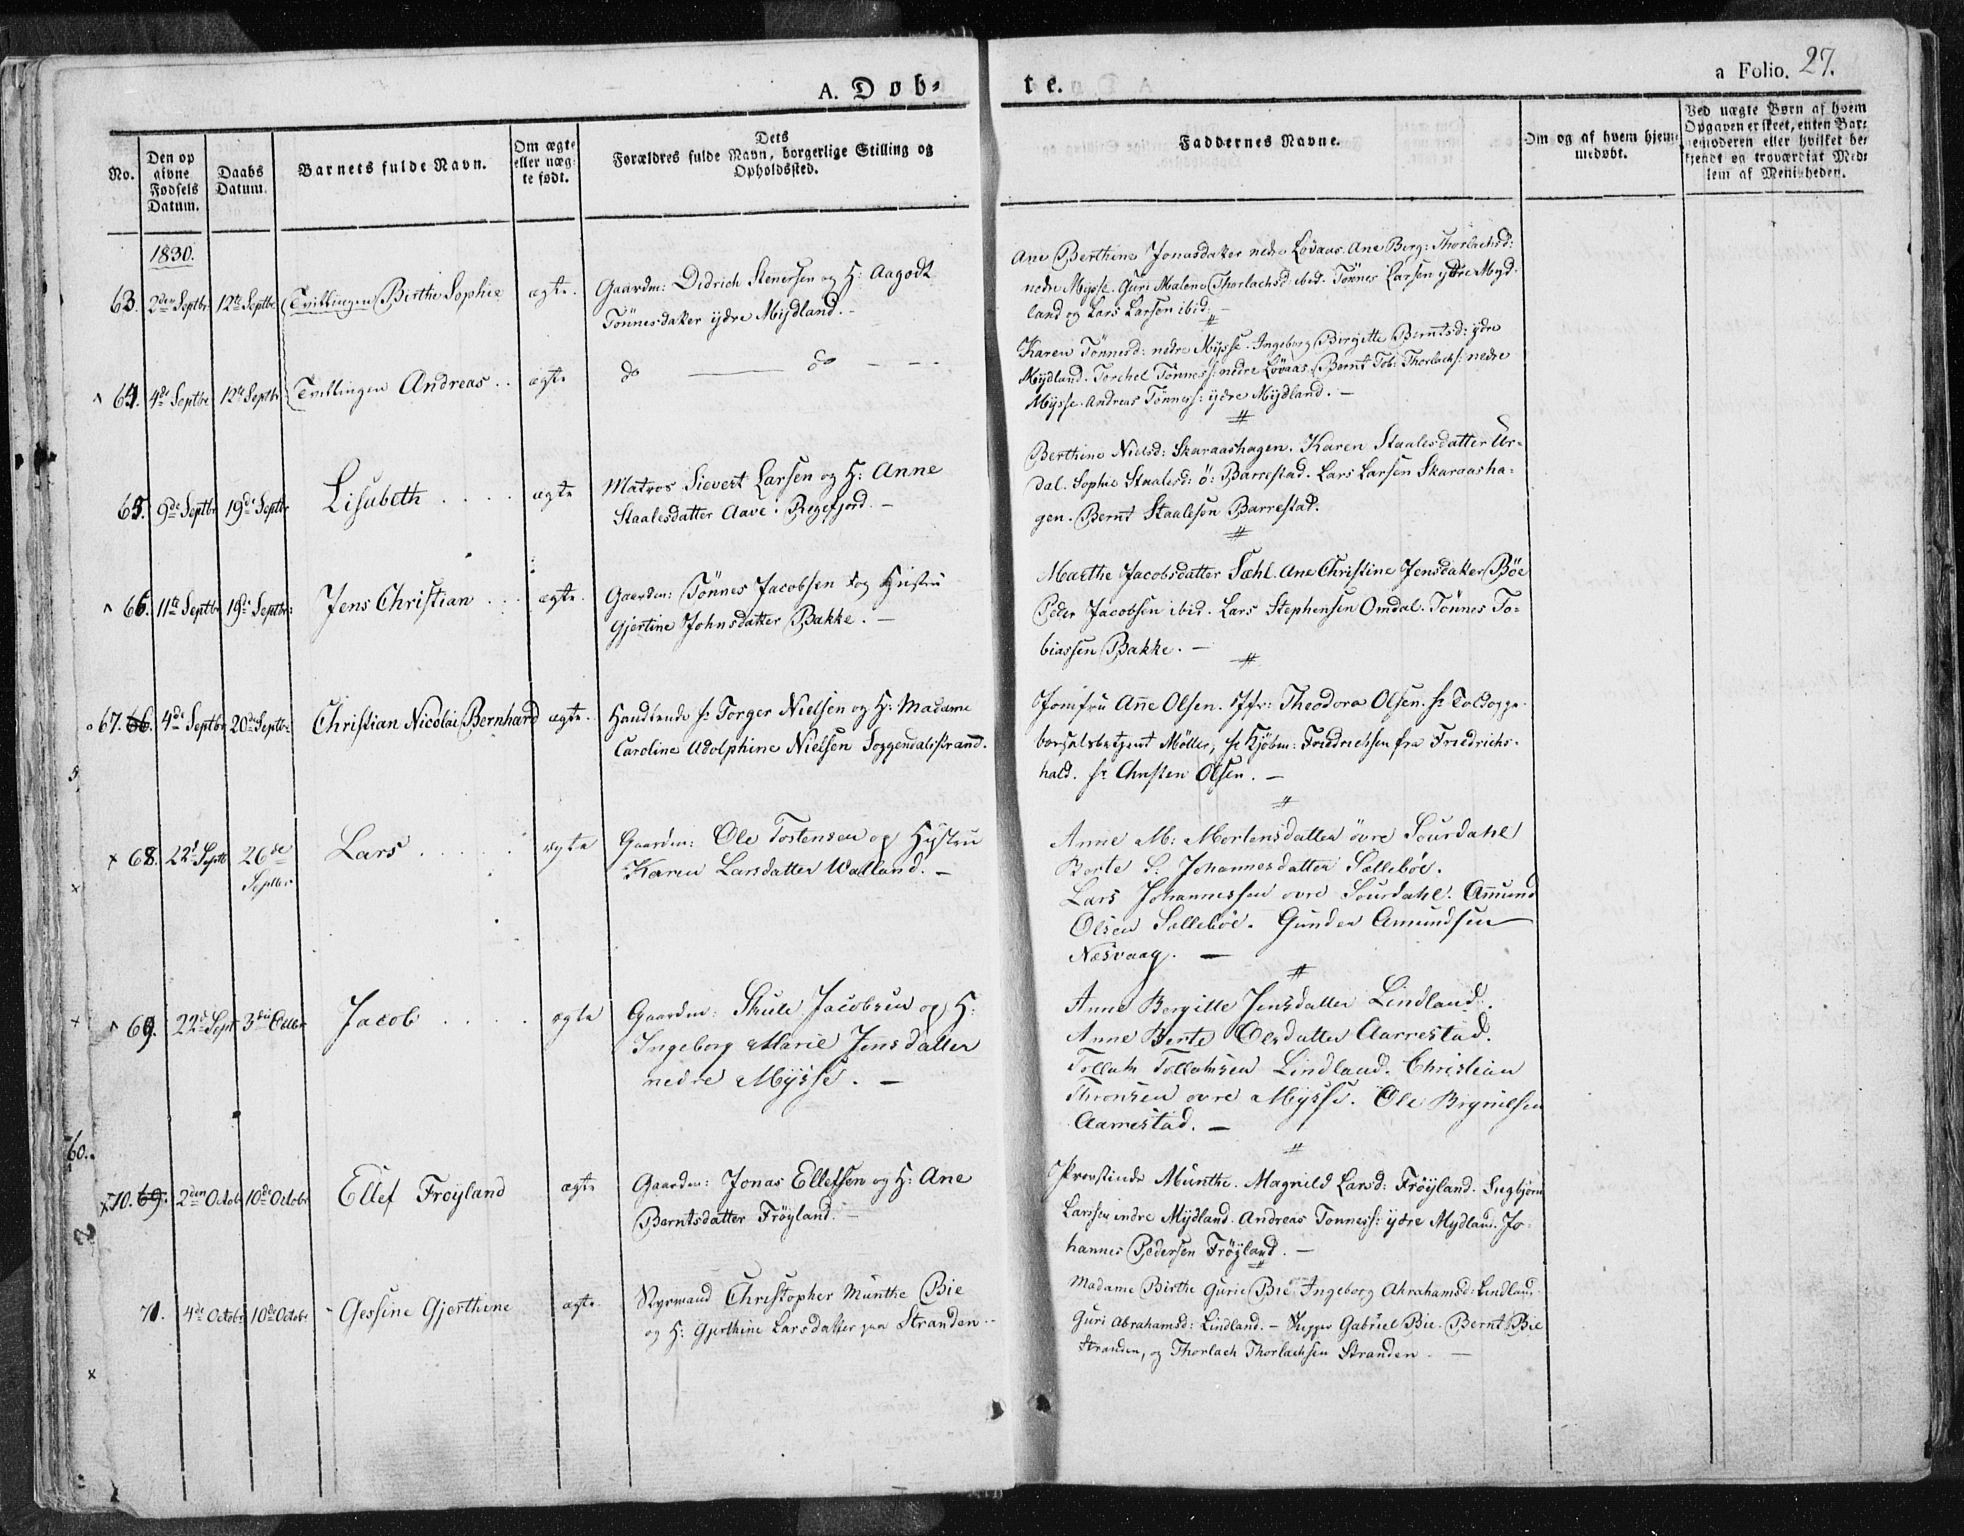 A. Døb-
te.
a Folio. 27.
No.
Den op
givne
Fødsels
Datum.
Daabs
Datum.
Barnets fulde Navn.
Om ægte
eller uæg-
te født.
Dets
Forældres fulde Navn, borgerlige Stilling og
Opholdssted.
Faddernes Navne.
Om og af hvem hjem-
medøbt.
Ved uægte Børn af hvem
Opgaven er skeet, enten Bar-
nemoderen eller hvilket be-
kjendt og troværdigt Med-
lem af Menigheden.
1830.
63. 2den Septbr 12te Septbr Tvillingen Birthe Sophie ægte. Gaardm: Didrich Stenersen og H: Aagodt
Tönnesdatter ydre Mydland. -
Ane Berthine Jonasdatter nedr Lövaas. Ane Berg: Thorlachsd:
nedre Mysse. Guri Malene Thorlachsd. ibid. Tönnes Larsen ydre Myd-
land og Lars Larsen ibid. -
64. 4de Septbr 12te Septbr Tvillingen Andreas .. ægte do do
Karen Tönnesd: nedre Mysse. Ingeborg Birgitte Berntsd: ydre
Mydland. Torchel Tönness: nedre Lövaas. Bernt Tob: Thorlachs: nedre
Mysse. Andreas Tönness: ydre Mydland. -
65. 9de Septbr 19de Septbr Lisabeth .... ægte Matros Sievert Larsen og H: Anne
Staalesdatter Aave i Regefjord. -
Berthine Nielsd: Skaraashagen. Karen Staalesdatter Ur-
dal. Sophie Staalesd: ö: Barrestad. Lars Larsen Skaraasha-
gen. Bernt Staalesön Barrestad.
66. 11te Septbr 19de Septbr: Jens Christian ... ægte. Gaardm: Tönnes Jacobsen og Hustru
Gjertine Johnsdatter Bakke. -
Marthe Jacobsdatter Sæhl. Ane Christine Jensdatter Böe
Peder Jacobsen ibid. Lars Stephensen Omdal. Tönnes To-
biassen Bakke. -
67. 66. 4de Septbr 20de Septbr: Christian Nicolai Bernhard ægte. Handlende Hr Torger Nielsen og H: Madame
Caroline Adolphine Nielsen Soggendalsstrand.
Jomfru Anne Olsen. Jfr: Theodora Olsen. Hr Toldoppe-
börselsbetjent Möller, Hr Kjöbm: Friedrichsen fra Friedrichs-
hald. Hr Christen Olsen. -
68. 22d Septb 26de
Septbr Lars ..... ægte Gaardm: Ole Tostensen og Hustru
Karen Larsdatter Watland. -
Anne M: Mortensdatter övre Sourdahl
Berte S. Johannesdatter Sælleböe.
Lars Johannessen ovre Sourdahl. Amund
Olsen Sællebóe. Gunder Amundsen
Næsvaag. -
69. 22d Sept 3die Octbr Jacob .... ægte Gaardm: Skule Jacobsen og H:
Ingeborg Marie Jensdatter
nedre Mysse. -
Anne Bergitte Jensdatter Lindland.
Anne Berte Olsdatter Aarrestad.
Tollak Tollaksen Lindland. Christian
Thronsen ovre Mysse. Ole Brynielsen
Aarrestad. -
70. 69. 2den Octob 10de Octobr Ellef Fröyland ægte Gaardm: Jonas Ellefsen og H: Ane
Berntsdatter Fröyland. -
Provstinde Münthe. Magnild Larsd: Fröyland. Ingbjörn
Larssen indre Mydland. Andreas Tonness: ydre Mydland. Jo-
hannes Pedersen Fröyland. -
71. 4de Octobr 10de Octobr Gessine Gjerthine ægte Styrmand Christopher Munthe Bie
og H: Gjerthine Larsdatter paa Stranden.
Madame Birthe Gurie Bie. Ingeborg Abrahamsd: Lindland
Guri Abrahamsd: Lindland. - Skipper Gabriel Bie. Bernt Bie
Stranden, og Thorlach Thorlachsen Stranden. -
60.